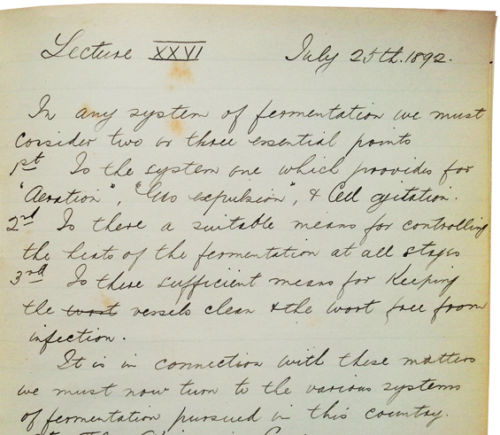 Lecture XXVI July 25th. 1892.
In any system of fermentation we must
consider two or three essential points
1st Is the system one which provides for
"Aeration", "Gas expulsion", & Cell agitation.
2nd Is there a suitable means for controlling
the heats of the fermentation at all stages
3rd Is there sufficient means for Keeping
the wort vessels clean & the wort free from
infection.
It is in connection with these matters
we must now turn to the various systems
of fermentation pursued in this country.